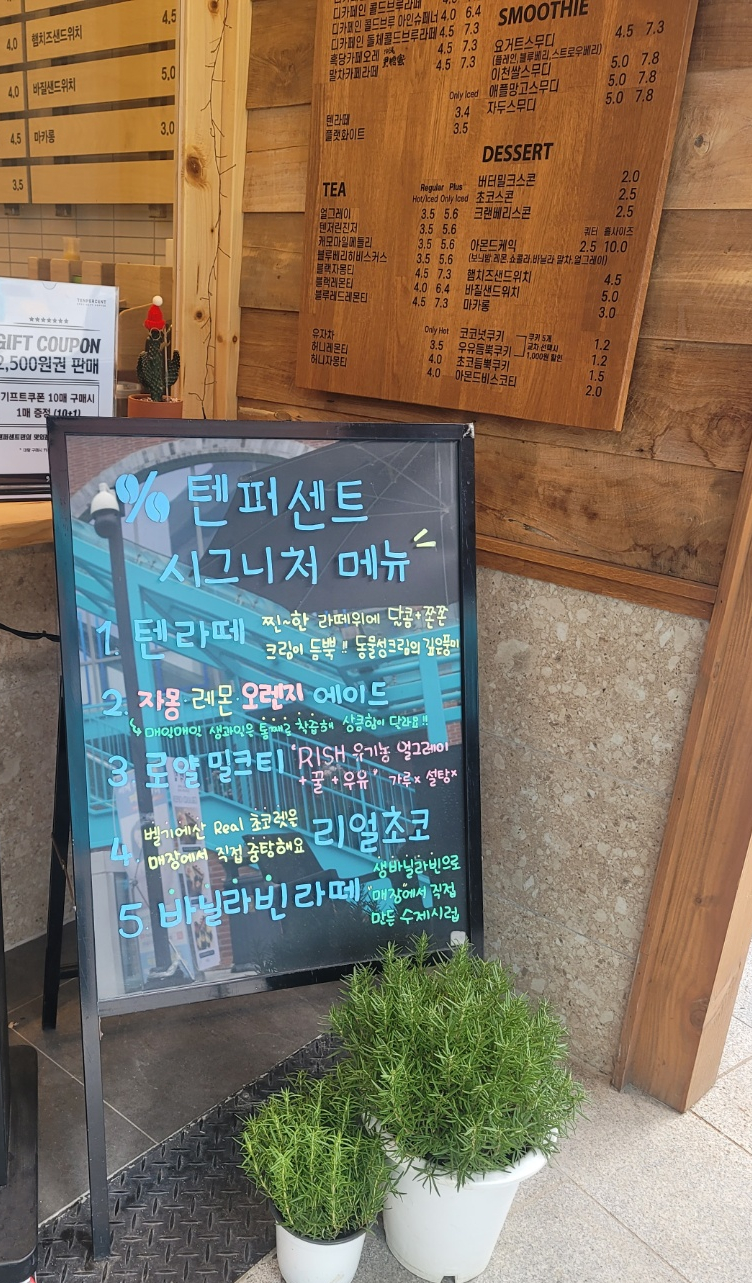 4.0 햄치즈샌드위치 4.5
4.0 바질샌드위치 5.0
4.5 마카롱 3.0
3.5
TENPERCENT
GIFT COUPON
2,500원권 판매
기프트쿠폰 10매 구매시
1매 증정 (10+1)
디카페인 콜드브루 아인슈페너 4.0 6.4
디카페인 돌체콜드브루라떼 4.5 7.3
흑당카페오레 4.5 7.3
말차카페라떼 4.5 7.3
Only Iced
텐라떼 3.4
플랫화이트 3.5
TEA
Regular Plus
Hot/Iced Only Iced
얼그레이 3.5 5.6
텐저린진저 3.5 5.6
캐모마일메들리 3.5 5.6
블루베리히비스커스 3.5 5.6
블랙자몽티 4.5 7.3
블랙레몬티 4.0 6.4
블루레드레몬티 4.5 7.3
Only Hot
유자차 3.5
허니레몬티 4.0
허니자몽티 4.0
SMOOTHIE
요거트스무디 4.5 7.3
(플레인,블루베리,스트로우베리)
이천쌀스무디 5.0 7.8
애플망고스무디 5.0 7.8
자두스무디 5.0 7.8
DESSERT
버터밀크스콘 2.0
초코스콘 2.5
크랜베리스콘 2.5
쿼터 홀사이즈
아몬드케익 2.5 10.0
(보늬밤,레몬,쇼콜라,바닐라,말차,얼그레이)
햄치즈샌드위치 4.5
바질샌드위치 5.0
마카롱 3.0
코코넛쿠키 1.2
우유듬뿍쿠키 1.2
초코듬뿍쿠키 1.5
아몬드비스코티 2.0
쿠키 5개
교차 선택시
1,000원 할인
% 텐퍼센트
시그니처 메뉴
1. 텐라떼 찐~한 라떼위에 달콤+쫀쫀
크림이 듬뿍!! 동물성크림의 깊은풍미
2. 자몽 레몬 오렌지 에이드
↳ 매일매일 생과일을 통째로 착즙해 상큼함이 달라요!!
3 로얄 밀크티 'RISH 유기농 얼그레이
+ 꿀 + 우유' 가루x 설탕x
4. 벨기에산 Real 초코렛을 리얼초코
매장에서 직접 중탕해요
5. 바닐라빈 라떼 생바닐라빈으로
"매장"에서 직접
만든 수제시럽